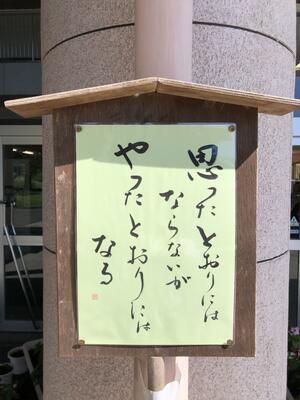 思ったとおりには
ならないが
やったとおりには
なる